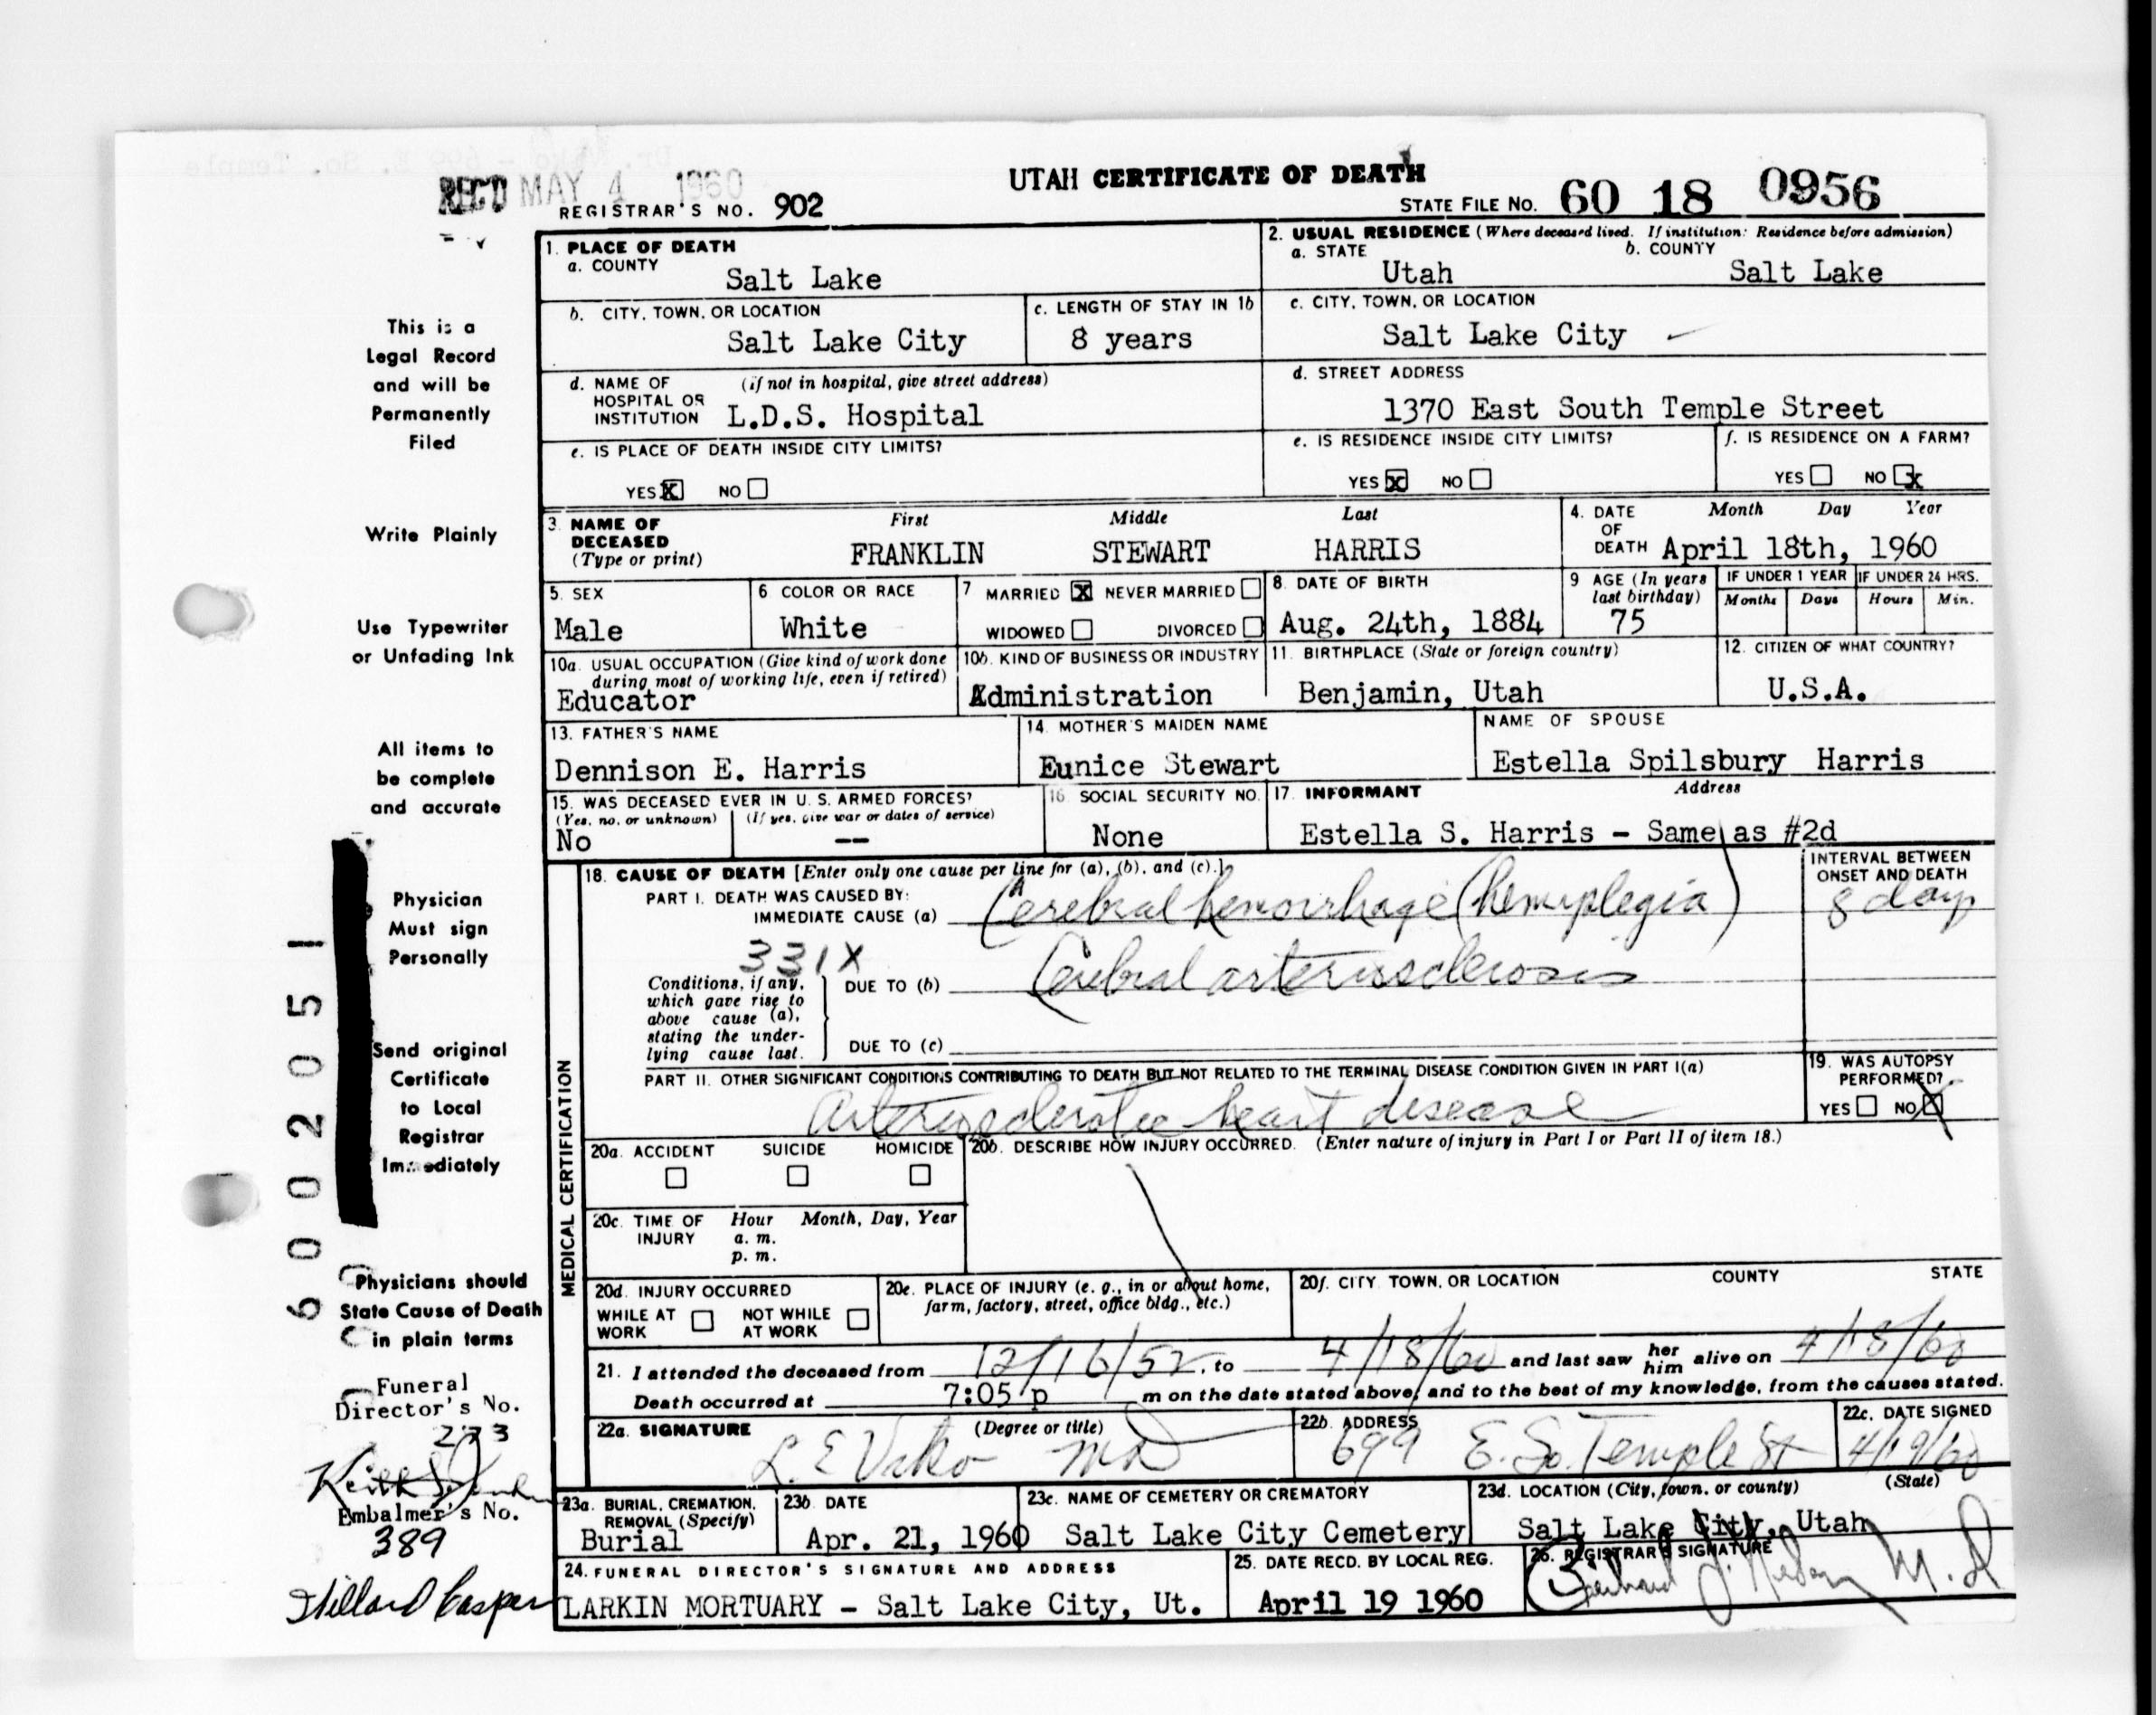 REC'D MAY 4 1960
UTAH CERTIFICATE OF DEATH
REGISTRAR'S NO. 902
STATE FILE NO. 60 18 0956
1. PLACE OF DEATH
a. COUNTY
Salt Lake
2. USUAL RESIDENCE (Where deceased lived. If institution: Residence before admission)
a. STATE b. COUNTY
Utah Salt Lake
b. CITY, TOWN, OR LOCATION
Salt Lake City
c. LENGTH OF STAY IN 1b
8 years
c. CITY, TOWN, OR LOCATION
Salt Lake City
d. NAME OF HOSPITAL OR INSTITUTION (if not in hospital, give street address)
L.D.S. Hospital
d. STREET ADDRESS
1370 East South Temple Street
e. IS PLACE OF DEATH INSIDE CITY LIMITS?
YES X NO
e. IS RESIDENCE INSIDE CITY LIMITS?
YES X NO
f. IS RESIDENCE ON A FARM?
YES NO X
3. NAME OF DECEASED (Type or print)
First Middle Last
FRANKLIN STEWART HARRIS
4. DATE OF DEATH Month Day Year
April 18th, 1960
5. SEX
Male
6 COLOR OR RACE
White
7 MARRIED X NEVER MARRIED
WIDOWED DIVORCED
8. DATE OF BIRTH
Aug. 24th, 1884
9 AGE (In years last birthday)
75
IF UNDER 1 YEAR
Months Days
IF UNDER 24 HRS.
Hours Min.
10a. USUAL OCCUPATION (Give kind of work done during most of working life, even if retired)
Educator
10b. KIND OF BUSINESS OR INDUSTRY
Administration
11. BIRTHPLACE (State or foreign country)
Benjamin, Utah
12. CITIZEN OF WHAT COUNTRY?
U.S.A.
13. FATHER'S NAME
Dennison E. Harris
14. MOTHER'S MAIDEN NAME
Eunice Stewart
NAME OF SPOUSE
Estella Spilsbury Harris
15. WAS DECEASED EVER IN U. S. ARMED FORCES?
(Yes, no, or unknown) (If yes, give war or dates of service)
No --
16. SOCIAL SECURITY NO.
None
17. INFORMANT Address
Estella S. Harris - Same as #2d
MEDICAL CERTIFICATION
18. CAUSE OF DEATH [Enter only one cause per line for (a), (b), and (c).]
PART I. DEATH WAS CAUSED BY:
IMMEDIATE CAUSE (a) Cerebral hemorrhage (hemiplegia)
INTERVAL BETWEEN ONSET AND DEATH
8 days
331X
Conditions, if any, which gave rise to above cause (a), stating the underlying cause last.
DUE TO (b) Cerebral arteriosclerosis
DUE TO (c)
PART II. OTHER SIGNIFICANT CONDITIONS CONTRIBUTING TO DEATH BUT NOT RELATED TO THE TERMINAL DISEASE CONDITION GIVEN IN PART I(a)
Arteriosclerotic heart disease
19. WAS AUTOPSY PERFORMED?
YES NO X
20a. ACCIDENT SUICIDE HOMICIDE
20b. DESCRIBE HOW INJURY OCCURRED. (Enter nature of injury in Part I or Part II of item 18.)
20c. TIME OF INJURY Hour Month, Day, Year
a. m.
p. m.
20d. INJURY OCCURRED
WHILE AT WORK NOT WHILE AT WORK
20e. PLACE OF INJURY (e. g., in or about home, farm, factory, street, office bldg., etc.)
20f. CITY, TOWN, OR LOCATION COUNTY STATE
21. I attended the deceased from 12/16/52, to 4/18/60 and last saw her him alive on 4/18/60
Death occurred at 7:05 p m on the date stated above, and to the best of my knowledge, from the causes stated.
22a. SIGNATURE (Degree or title)
L. E. Viko MD
22b. ADDRESS
699 E. So. Temple St
22c. DATE SIGNED
4/19/60
23a. BURIAL, CREMATION, REMOVAL (Specify)
Burial
23b. DATE
Apr. 21, 1960
23c. NAME OF CEMETERY OR CREMATORY
Salt Lake City Cemetery
23d. LOCATION (City, town, or county) (State)
Salt Lake City, Utah
24. FUNERAL DIRECTOR'S SIGNATURE AND ADDRESS
LARKIN MORTUARY - Salt Lake City, Ut.
25. DATE RECD. BY LOCAL REG.
April 19 1960
26. REGISTRAR'S SIGNATURE
M.D
This is a
Legal Record
and will be
Permanently
Filed
Write Plainly
Use Typewriter
or Unfading Ink
All items to
be complete
and accurate
Physician
Must sign
Personally
Send original
Certificate
to Local
Registrar
Immediately
Physicians should
State Cause of Death
in plain terms
Funeral
Director's No.
273
Keith
Embalmer's No.
389
6002051